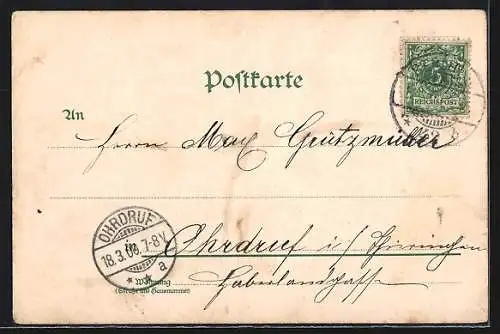 Postkarte
5
REICHSPOST
An
Herrn Max Grützmüller
OHRDRUF
18.3.00. 7-8V.
* * a
Ohrdruf i/ Thüringen
Wohnung
(Straße und Hausnummer)
Haberlandgasse